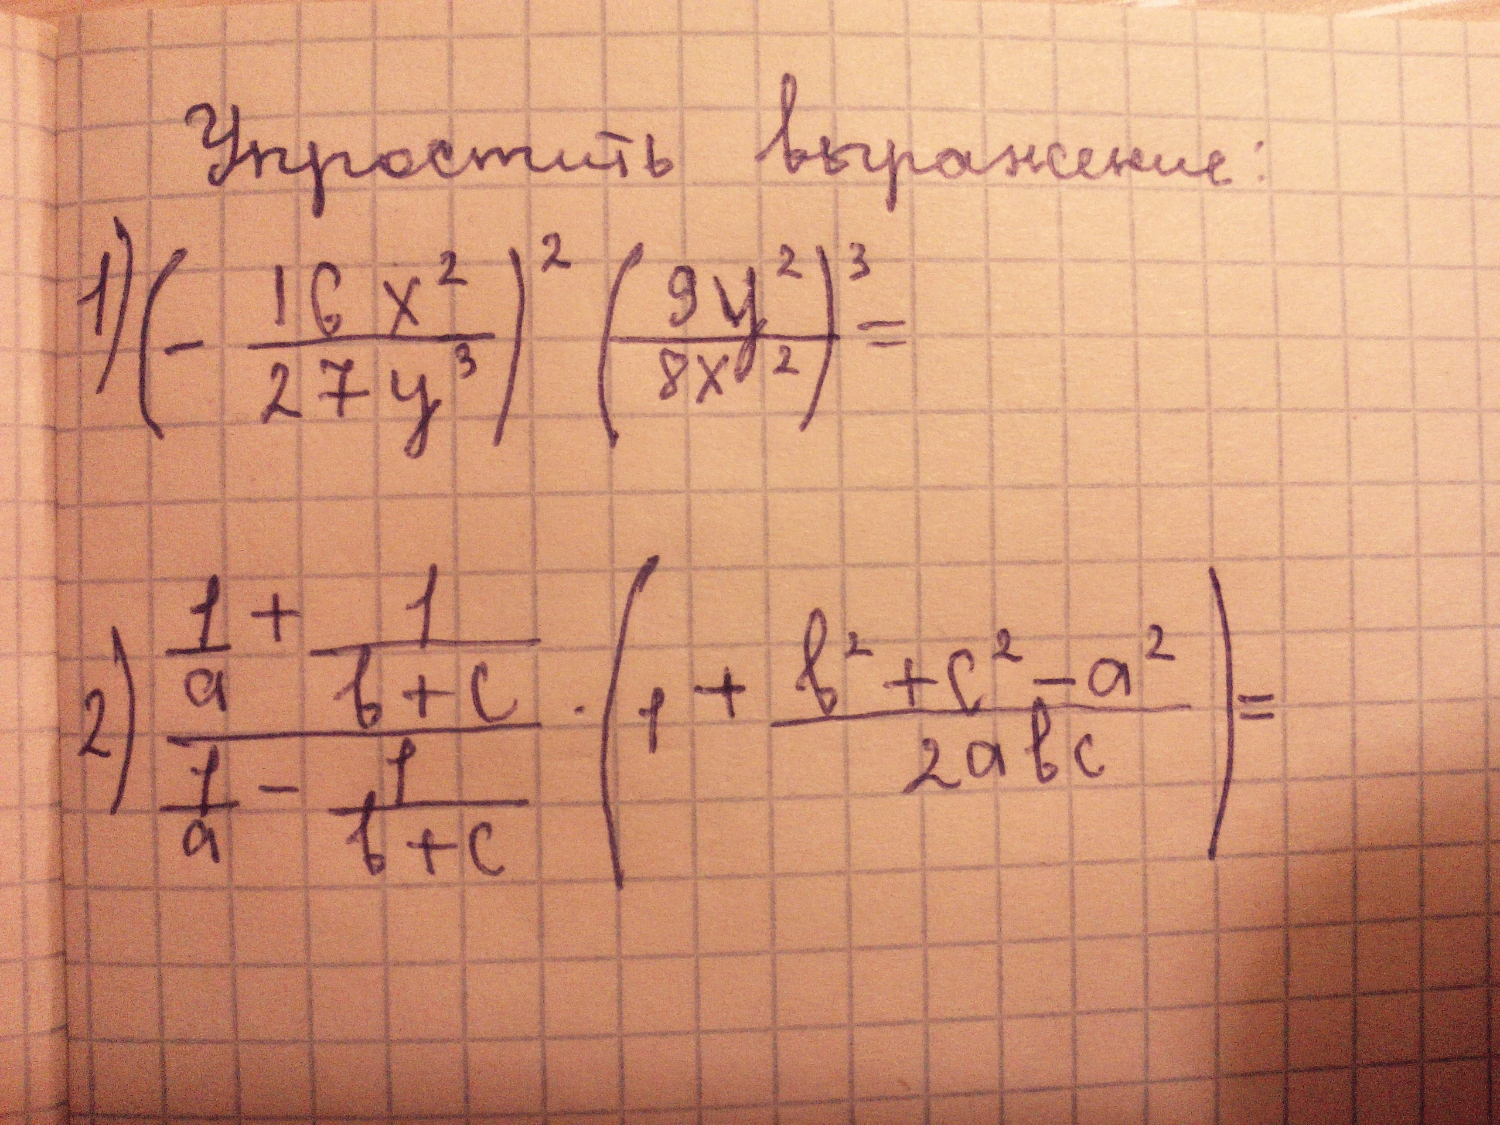 Упростить выражение:
1) (- 16x²/27y³)² (9y²/8x²)³ =
2) (1/a + 1/(b+c))/(1/a - 1/(b+c)) · (1 + (b²+c²-a²)/2abc) =